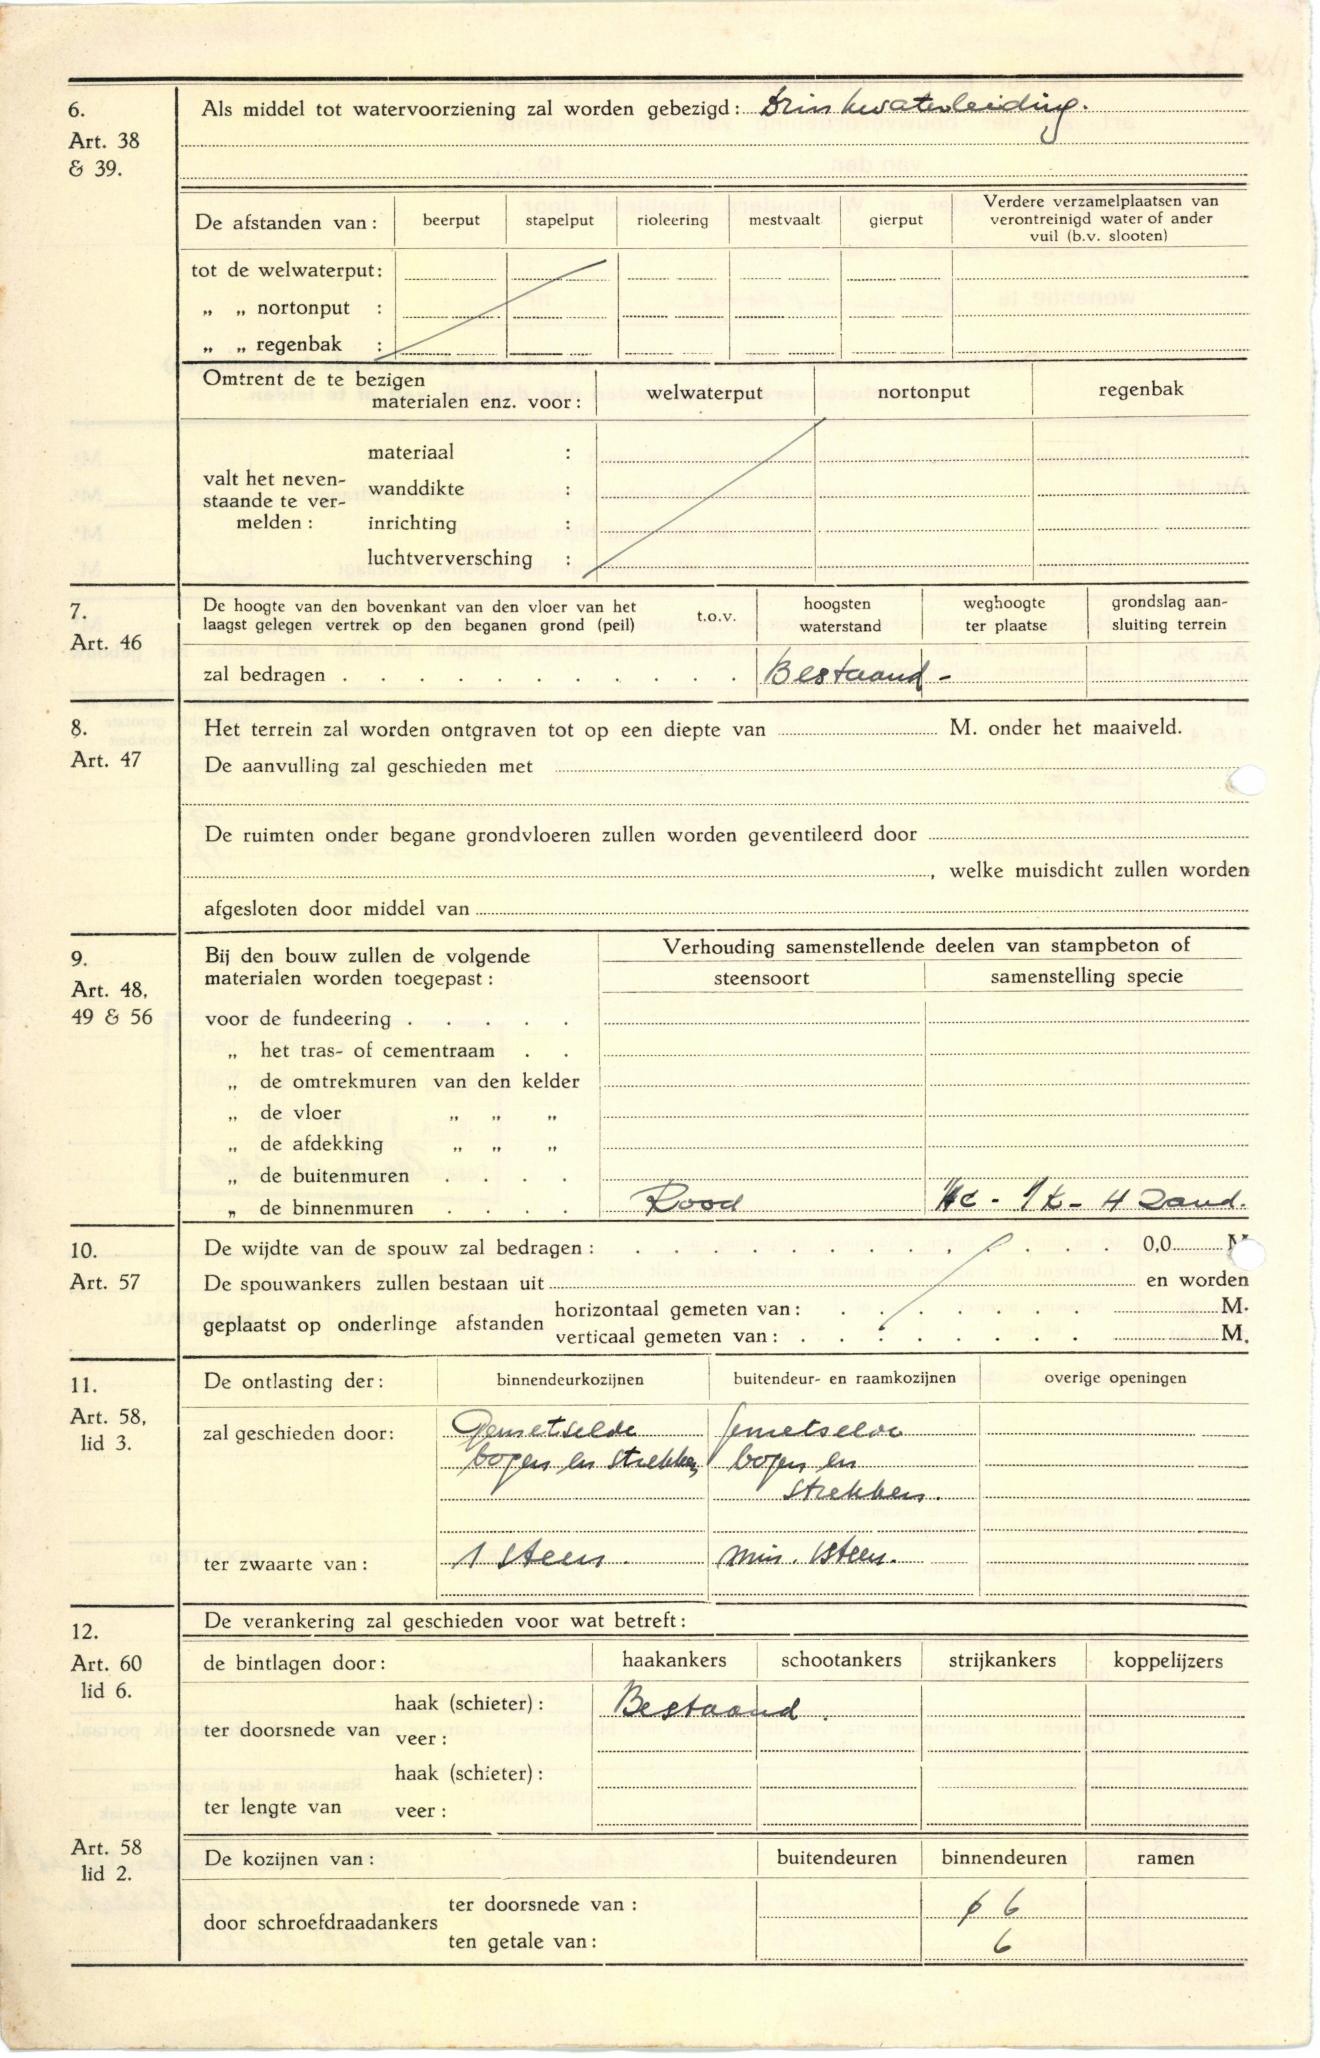 6.
Art. 38
& 39.
Als middel tot watervoorziening zal worden gebezigd: Drinkwaterleiding.
De afstanden van: beerput stapelput rioleering mestvaalt gierput Verdere verzamelplaatsen van verontreinigd water of ander vuil (b.v. slooten)
tot de welwaterput:
„ „ nortonput :
„ „ regenbak :
Omtrent de te bezigen
materialen enz. voor: welwaterput nortonput regenbak
valt het neven-
staande te ver-
melden :
materiaal :
wanddikte :
inrichting :
luchtverversching :
7.
Art. 46
De hoogte van den bovenkant van den vloer van het
laagst gelegen vertrek op den beganen grond (peil) t.o.v. hoogsten waterstand weghoogte ter plaatse grondslag aan- sluiting terrein
zal bedragen . . . . . . . . . . . Bestaand -
8.
Art. 47
Het terrein zal worden ontgraven tot op een diepte van M. onder het maaiveld.
De aanvulling zal geschieden met
De ruimten onder begane grondvloeren zullen worden geventileerd door
, welke muisdicht zullen worden
afgesloten door middel van
9.
Art. 48,
49 & 56
Bij den bouw zullen de volgende
materialen worden toegepast:
Verhouding samenstellende deelen van stampbeton of
steensoort samenstelling specie
voor de fundeering . . . . .
„ het tras- of cementraam . .
„ de omtrekmuren van den kelder
„ de vloer „ „ „
„ de afdekking „ „ „
„ de buitenmuren . . . .
„ de binnenmuren . . . . Rood c - 1 k - 4 Zand.
10.
Art. 57
De wijdte van de spouw zal bedragen : . . . . . . . . . . . . 0,0 M
De spouwankers zullen bestaan uit en worden
geplaatst op onderlinge afstanden
horizontaal gemeten van: . . . . . . . M.
verticaal gemeten van: . . . . . . . . M.
11.
Art. 58,
lid 3.
De ontlasting der: binnendeurkozijnen buitendeur- en raamkozijnen overige openingen
zal geschieden door: Gemetselde gemetselde
bogen en strekken bogen en
strekken.
ter zwaarte van: 1 steen. min. 1steen.
12.
Art. 60
lid 6.
De verankering zal geschieden voor wat betreft:
de bintlagen door: haakankers schootankers strijkankers koppelijzers
haak (schieter): Bestaand.
ter doorsnede van
veer :
haak (schieter):
ter lengte van
veer :
Art. 58
lid 2.
De kozijnen van: buitendeuren binnendeuren ramen
door schroefdraadankers
ter doorsnede van : ø 6
ten getale van: 6